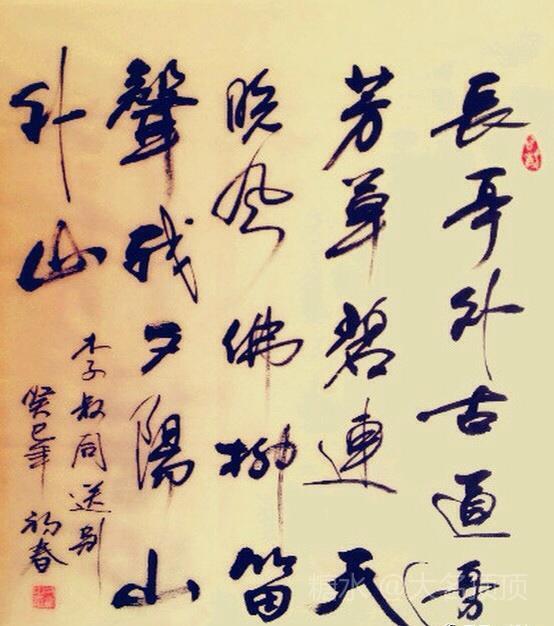 長亭外古道邊
芳草碧連天
晚風佛柳笛
聲殘夕陽山
外山
李叔同送别
癸巳年初春
糖水 @大名顶顶